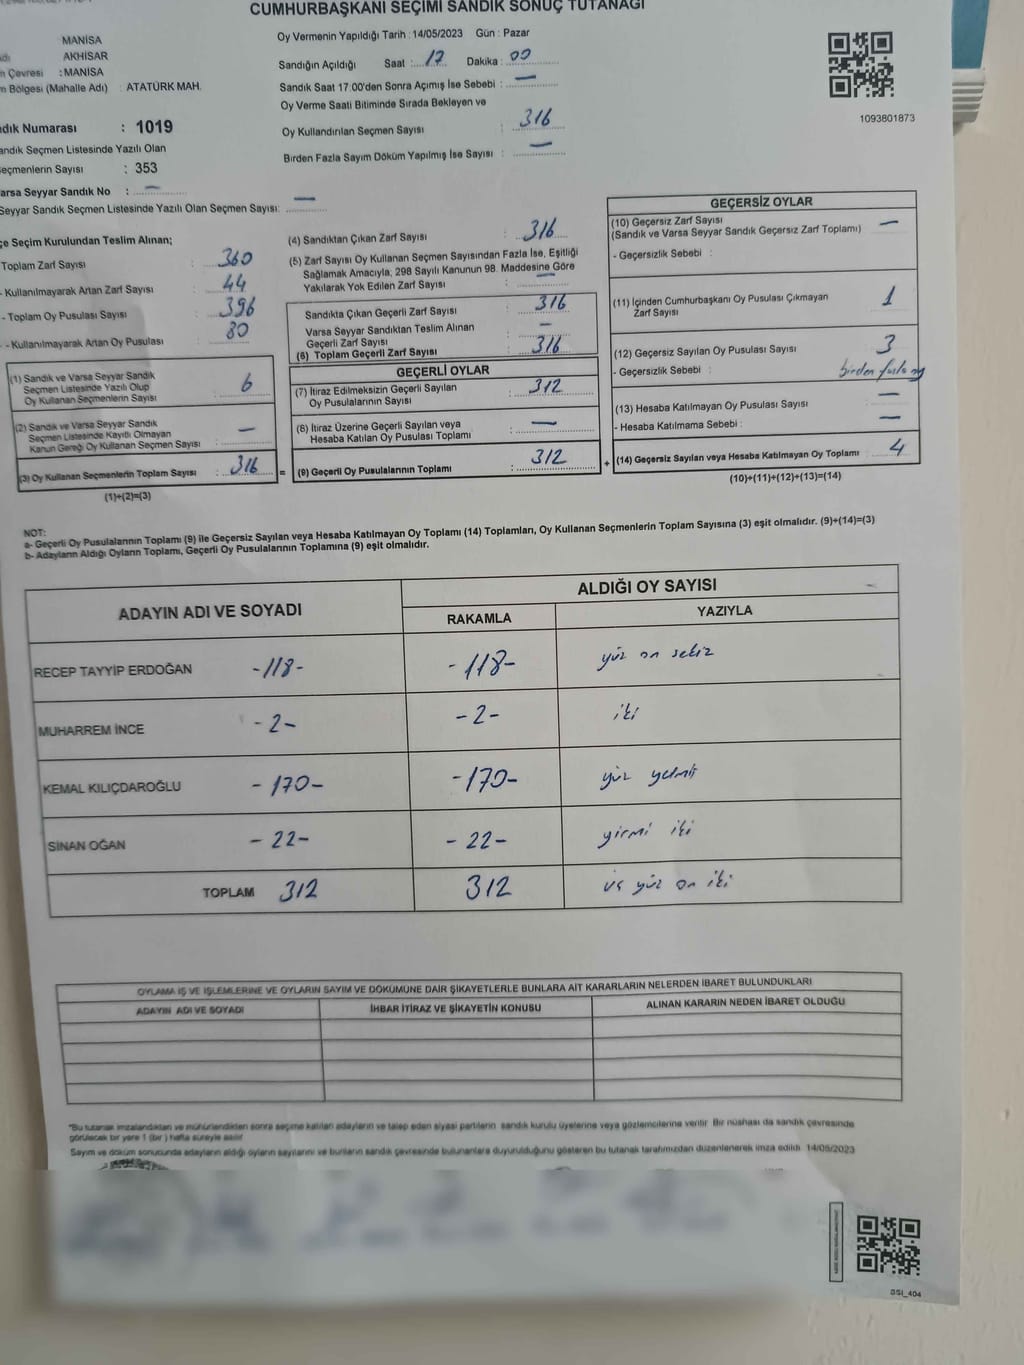 CUMHURBAŞKANI SEÇİMİ SANDIK SONUÇ TUTANAĞI
MANİSA
AKHİSAR
Çevresi : MANİSA
Bölgesi (Mahalle Adı) : ATATÜRK MAH.
Numarası : 1019
Seçmen Listesinde Yazılı Olan
Sayısı : 353
Seyyar Sandık No : —
Seyyar Sandık Seçmen Listesinde Yazılı Olan Seçmen Sayısı: —
Oy Vermenin Yapıldığı Tarih : 14/05/2023 Gün : Pazar
Sandığın Açıldığı Saat : 17 Dakika : 00
Sandık Saat 17:00'den Sonra Açımış İse Sebebi : —
Oy Verme Saati Bitiminde Sırada Bekleyen ve
Oy Kullandırılan Seçmen Sayısı : 316
Birden Fazla Sayım Döküm Yapılmış İse Sayısı : —
1093801873
Seçim Kurulundan Teslim Alınan;
Toplam Zarf Sayısı : 360
- Kullanılmayarak Artan Zarf Sayısı : 44
- Toplam Oy Pusulası Sayısı : 396
- Kullanılmayarak Artan Oy Pusulası : 80
(1) Sandık ve Varsa Seyyar Sandık
Seçmen Listesinde Yazılı Olup
Oy Kullanan Seçmenlerin Sayısı : 6
(2) Sandık ve Varsa Seyyar Sandık
Seçmen Listesinde Kayıtlı Olmayan
Kanun Gereği Oy Kullanan Seçmen Sayısı : —
(3) Oy Kullanan Seçmenlerin Toplam Sayısı : 316
(1)+(2)=(3)
(4) Sandıktan Çıkan Zarf Sayısı : 316
(5) Zarf Sayısı Oy Kullanan Seçmen Sayısından Fazla İse, Eşitliği
Sağlamak Amacıyla, 298 Sayılı Kanunun 98. Maddesine Göre
Yakılarak Yok Edilen Zarf Sayısı : —
Sandıkta Çıkan Geçerli Zarf Sayısı : 316
Varsa Seyyar Sandıktan Teslim Alınan
Geçerli Zarf Sayısı : —
(6) Toplam Geçerli Zarf Sayısı : 316
GEÇERLİ OYLAR
(7) İtiraz Edilmeksizin Geçerli Sayılan
Oy Pusulalarının Sayısı : 312
(8) İtiraz Üzerine Geçerli Sayılan veya
Hesaba Katılan Oy Pusulası Toplamı : —
= (9) Geçerli Oy Pusulalarının Toplamı : 312
GEÇERSİZ OYLAR
(10) Geçersiz Zarf Sayısı
(Sandık ve Varsa Seyyar Sandık Geçersiz Zarf Toplamı) —
- Geçersizlik Sebebi :
(11) İçinden Cumhurbaşkanı Oy Pusulası Çıkmayan
Zarf Sayısı 1
(12) Geçersiz Sayılan Oy Pusulası Sayısı 3
- Geçersizlik Sebebi : birden fazla oy
(13) Hesaba Katılmayan Oy Pusulası Sayısı —
- Hesaba Katılmama Sebebi : —
+ (14) Geçersiz Sayılan veya Hesaba Katılmayan Oy Toplamı : 4
(10)+(11)+(12)+(13)=(14)
NOT:
a- Geçerli Oy Pusulalarının Toplamı (9) ile Geçersiz Sayılan veya Hesaba Katılmayan Oy Toplamı (14) Toplamları, Oy Kullanan Seçmenlerin Toplam Sayısına (3) eşit olmalıdır. (9)+(14)=(3)
b- Adayların Aldığı Oyların Toplamı, Geçerli Oy Pusulalarının Toplamına (9) eşit olmalıdır.
ADAYIN ADI VE SOYADI
ALDIĞI OY SAYISI
RAKAMLA YAZIYLA
RECEP TAYYİP ERDOĞAN -118- -118- yüz on sekiz
MUHARREM İNCE -2- -2- iki
KEMAL KILIÇDAROĞLU -170- -170- yüz yetmiş
SİNAN OĞAN -22- -22- yirmi iki
TOPLAM 312 312 üç yüz on iki
OYLAMA İŞ VE İŞLEMLERİNE VE OYLARIN SAYIM VE DÖKÜMÜNE DAİR ŞİKAYETLERLE BUNLARA AİT KARARLARIN NELERDEN İBARET BULUNDUKLARI
ADAYIN ADI VE SOYADI İHBAR İTİRAZ VE ŞİKAYETİN KONUSU ALINAN KARARIN NEDEN İBARET OLDUĞU
*Bu tutanak imzalandıktan ve mühürlendikten sonra seçime katılan adayların ve talep eden siyasi partilerin sandık kurulu üyelerine veya gözlemcilerine verilir. Bir nüshası da sandık çevresinde
görülecek bir yere 1 (bir) hafta süreyle asılır
Sayım ve döküm sonucunda adayların aldığı oyların sayılarını ve bunların sandık çevresinde bulunanlara duyurulduğunu gösteren bu tutanak tarafımızdan düzenlenerek imza edildi. 14/05/2023
SSI_404